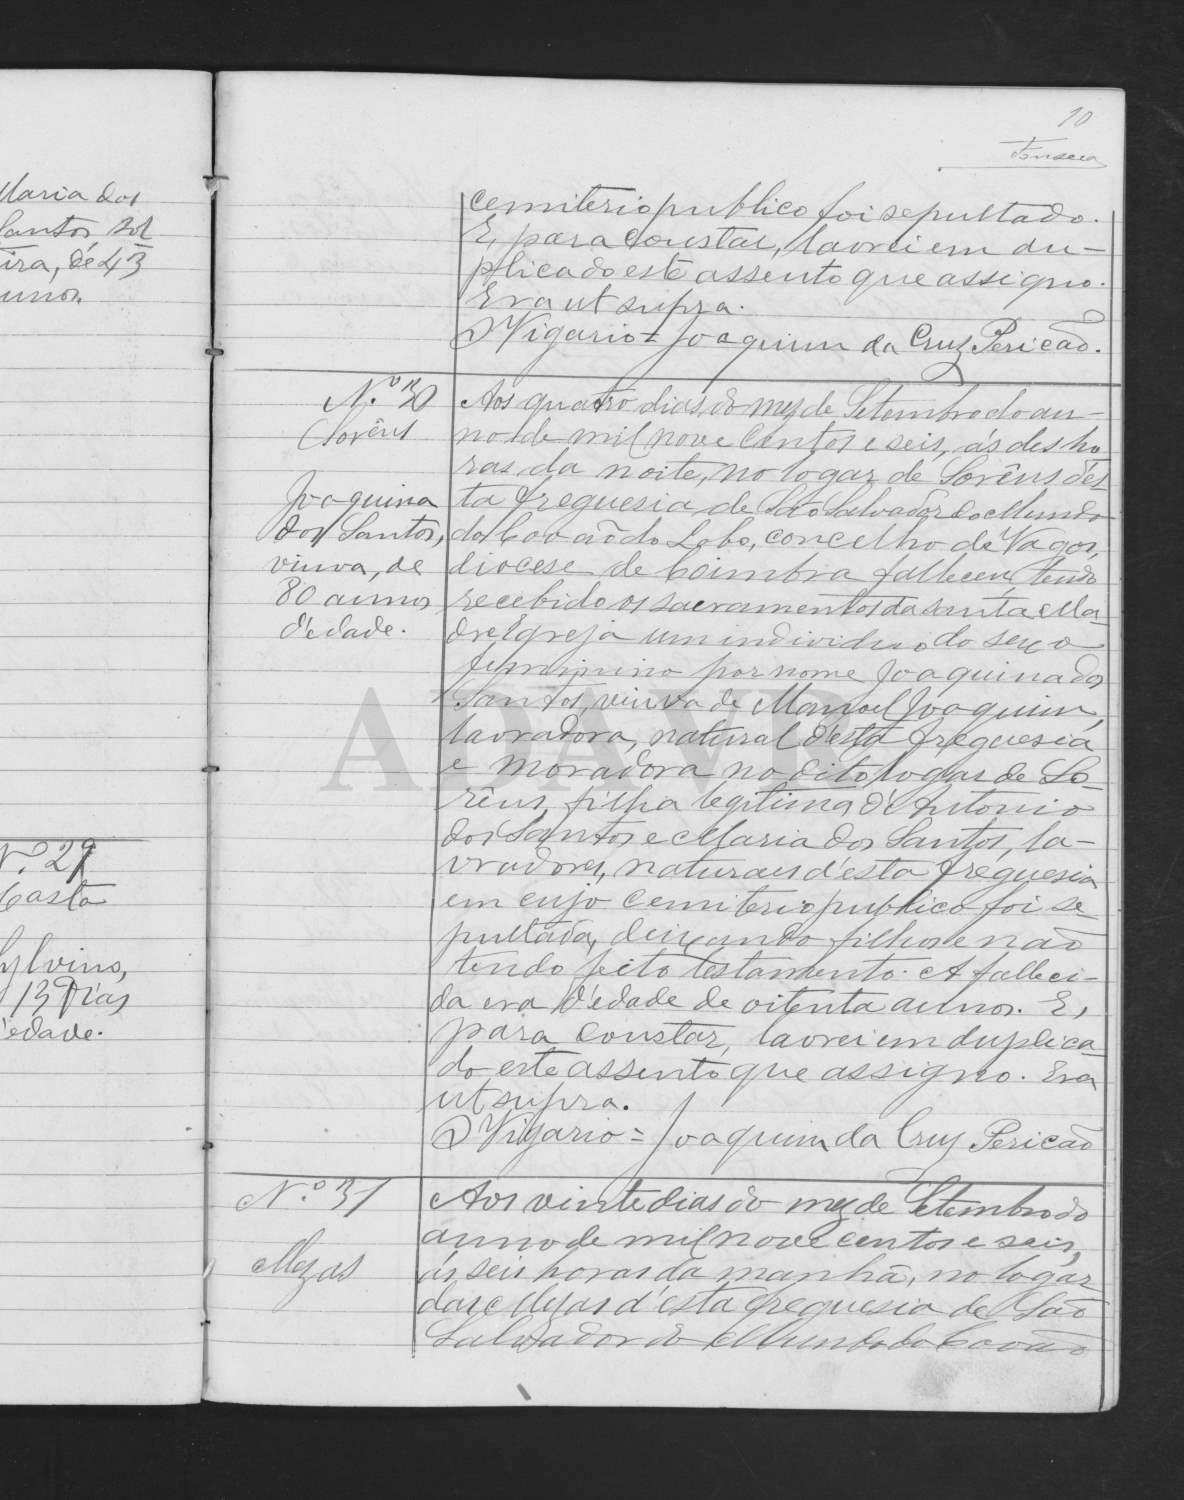 Maria dos
Santos sol
teira, de 43
annos.
N.º 29
Gasta
Sylvino,
13 Dias
d'edade.
10
Fonseca
cemiterio publico foi sepultado.
E, para constar, lavrei em du-
plicado este assento que assigno.
Era ut supra.
O Vigario = Joaquim da Cruz Pericão.
N.º 30
Lorêns
Joaquina
dos Santos,
viuva, de
80 annos
d'edade.
Aos quatro dias do mez de Setembro do an-
no de mil nove centos e seis, ás des ho
ras da noite, no logar de Sorêns d'es
ta freguesia de São Salvador do Mundo
do Covão do Lobo, concelho de Vagos,
diocese de Coimbra falleceu tendo
recebido os sacramentos da santa Ma-
dre Egreja um individuo do sexo
feminino por nome Joaquina dos
Santos, viuva de Manoel Joaquim,
lavradora, natural d'esta freguesia
e moradora no dito logar de So-
rêns, filha legitima d'Antonio
dos Santos e Maria dos Santos, la-
vradores, naturaes d'esta freguesia
em cujo cemiterio publico foi se
pultada, deixando filhos e não
tendo feito testamento. A falleci-
da era d'edade de oitenta annos. E,
para constar, lavrei em duplica-
do este assento que assigno. Era
ut supra.
O Vigario = Joaquim da Cruz Pericão
N.º 31
Mezas
Aos vinte dias do mez de Setembro do
anno de mil nove centos e seis,
ás seis horas da manhã, no logar
das Mezas d'esta freguesia de São
Salvador do Mundo do Covão
ADAVR